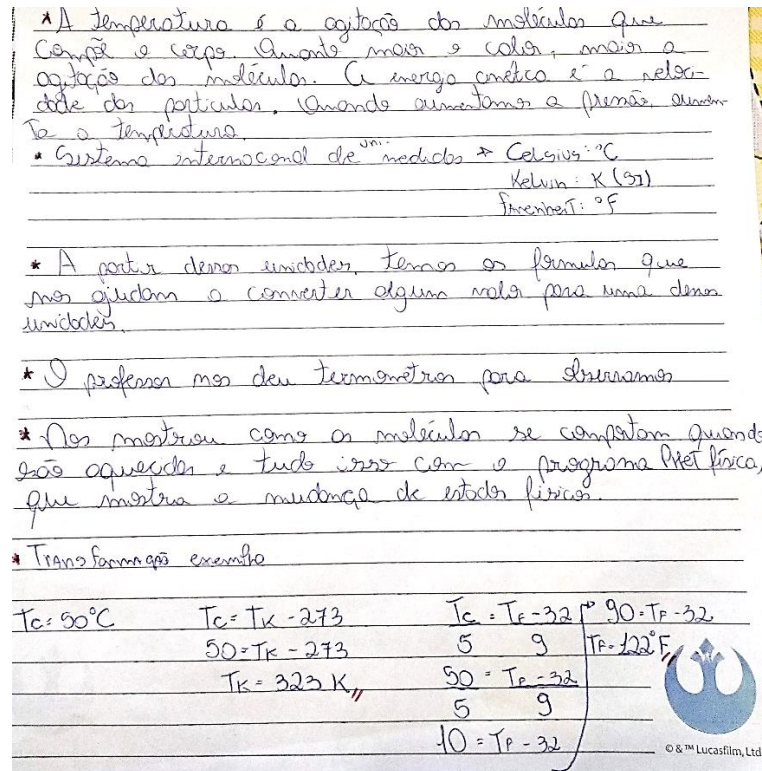 * A temperatura é a agitação das moléculas que
Compõe o corpo. Quanto maior o calor, maior a
agitação das moléculas. A energia cinética é a veloci-
dade das partículas. Quando aumentamos a pressão, aumen-
Ta a temperatura.
* Sistema internacional de uni. medidas → Celsius: °C
Kelvin: K (SI)
: °F
* A partir dessas unidades, temos as fórmulas que
nos ajudam a converter algum valor para uma dessas
unidades.
* O professor nos deu termometros para
* Nos mostrou como as moléculas se comportam quando
são aquecidas e tudo isso com o programa PHET física,
que mostra a mudança de estados físicos.
* Transformação exemplo
Tc= 50°C Tc= TK - 273 Tc = TF - 32 90 = TF - 32
50= TK - 273 5 9 TF= 122°F
TK = 323 K 50 = TF - 32
5 9
10 = TF - 32
© & ™ Lucasfilm, Ltd